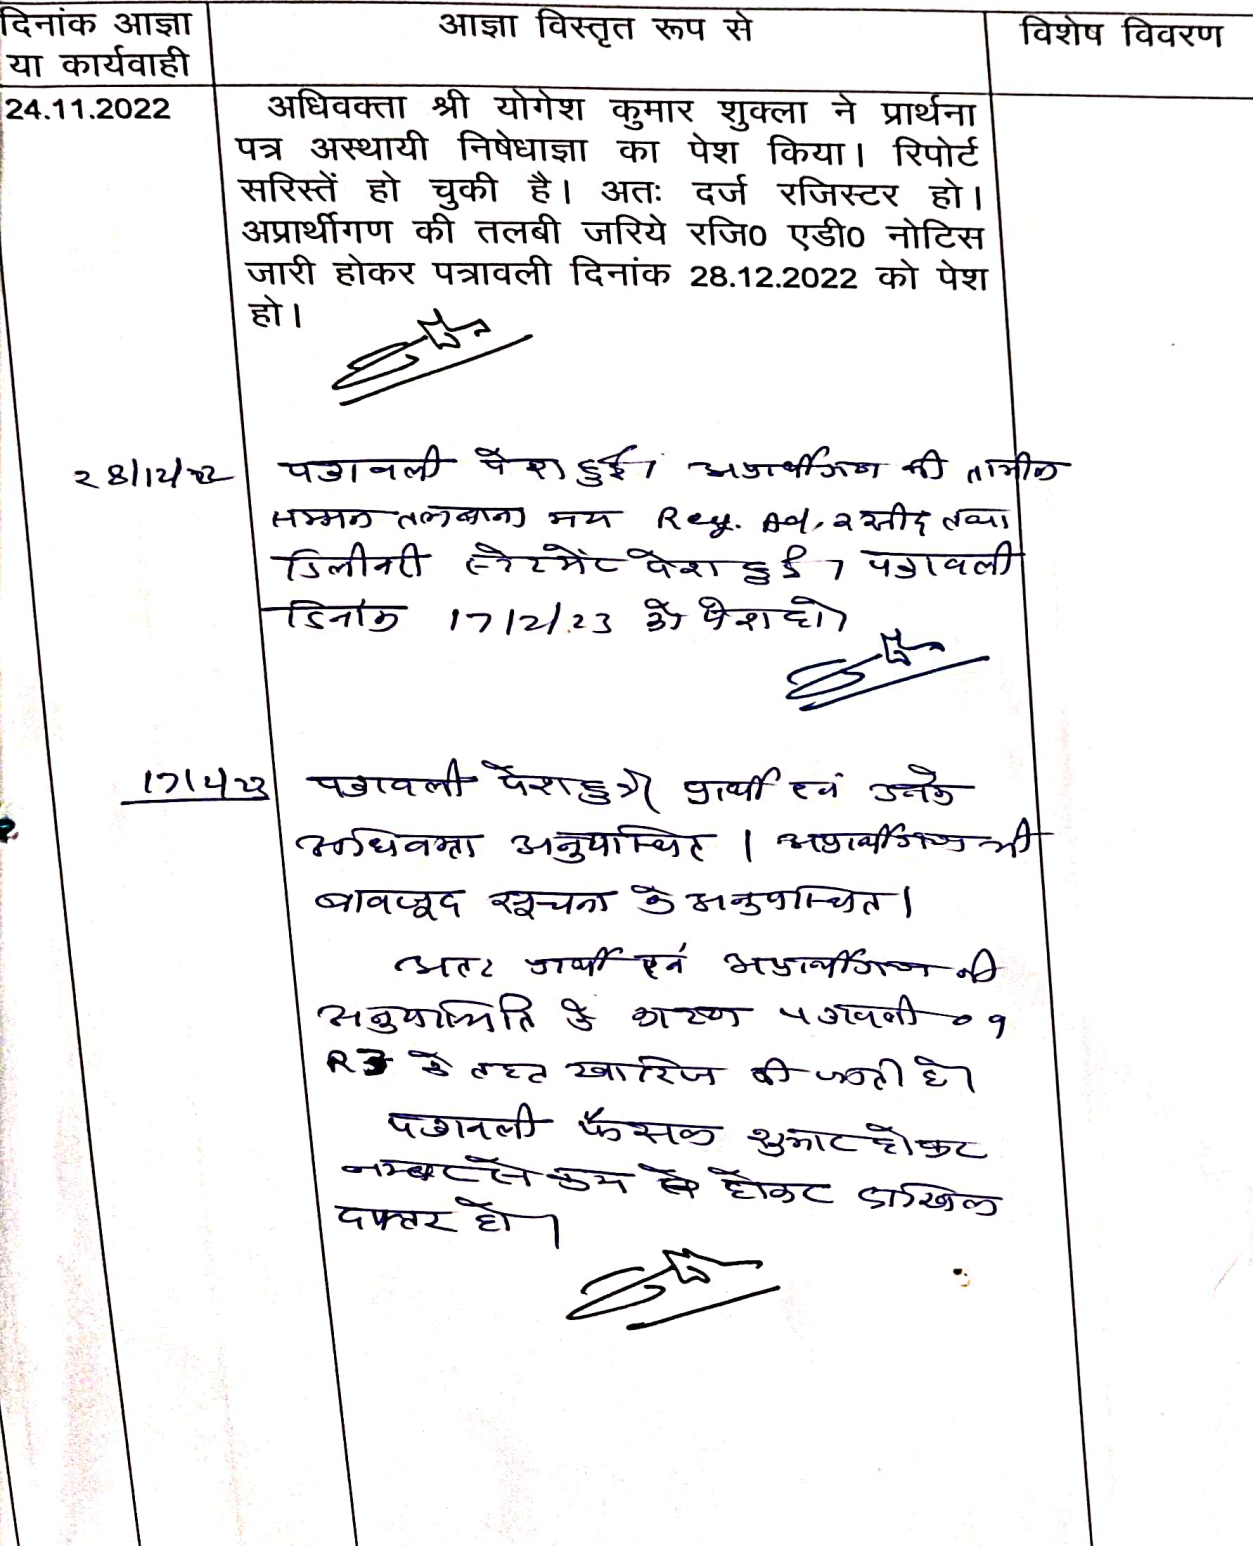 दिनांक आज्ञा
या कार्यवाही
आज्ञा विस्तृत रूप से
विशेष विवरण
24.11.2022
अधिवक्ता श्री योगेश कुमार शुक्ला ने प्रार्थना
पत्र अस्थायी निषेधाज्ञा का पेश किया। रिपोर्ट
सरिस्तें हो चुकी है। अतः दर्ज रजिस्टर हो।
अप्रार्थीगण की तलबी जरिये रजि0 एडी0 नोटिस
जारी होकर पत्रावली दिनांक 28.12.2022 को पेश
हो।
28/12/22
पत्रावली पेश हुई। अप्रार्थीगण की तामील
सम्मन तलबाना मय Reg. Ad, रसीद तथा
डिलीवरी स्टेटमेंट पेश हुई। पत्रावली
दिनांक 17/2/23 को पेश हो।
पत्रावली पेश हुई। प्रार्थी एवं उनके
अधिवक्ता अनुपस्थित। अप्रार्थीगण भी
बावजूद सूचना के अनुपस्थित।
अतः प्रार्थी एवं अप्रार्थीगण की
अनुपस्थिति के कारण पत्रावली 09
R3 के तहत खारिज की जाती है।
पत्रावली फैसल शुमार होकर
नम्बर से कम होकर दाखिल
दफ्तर हो।